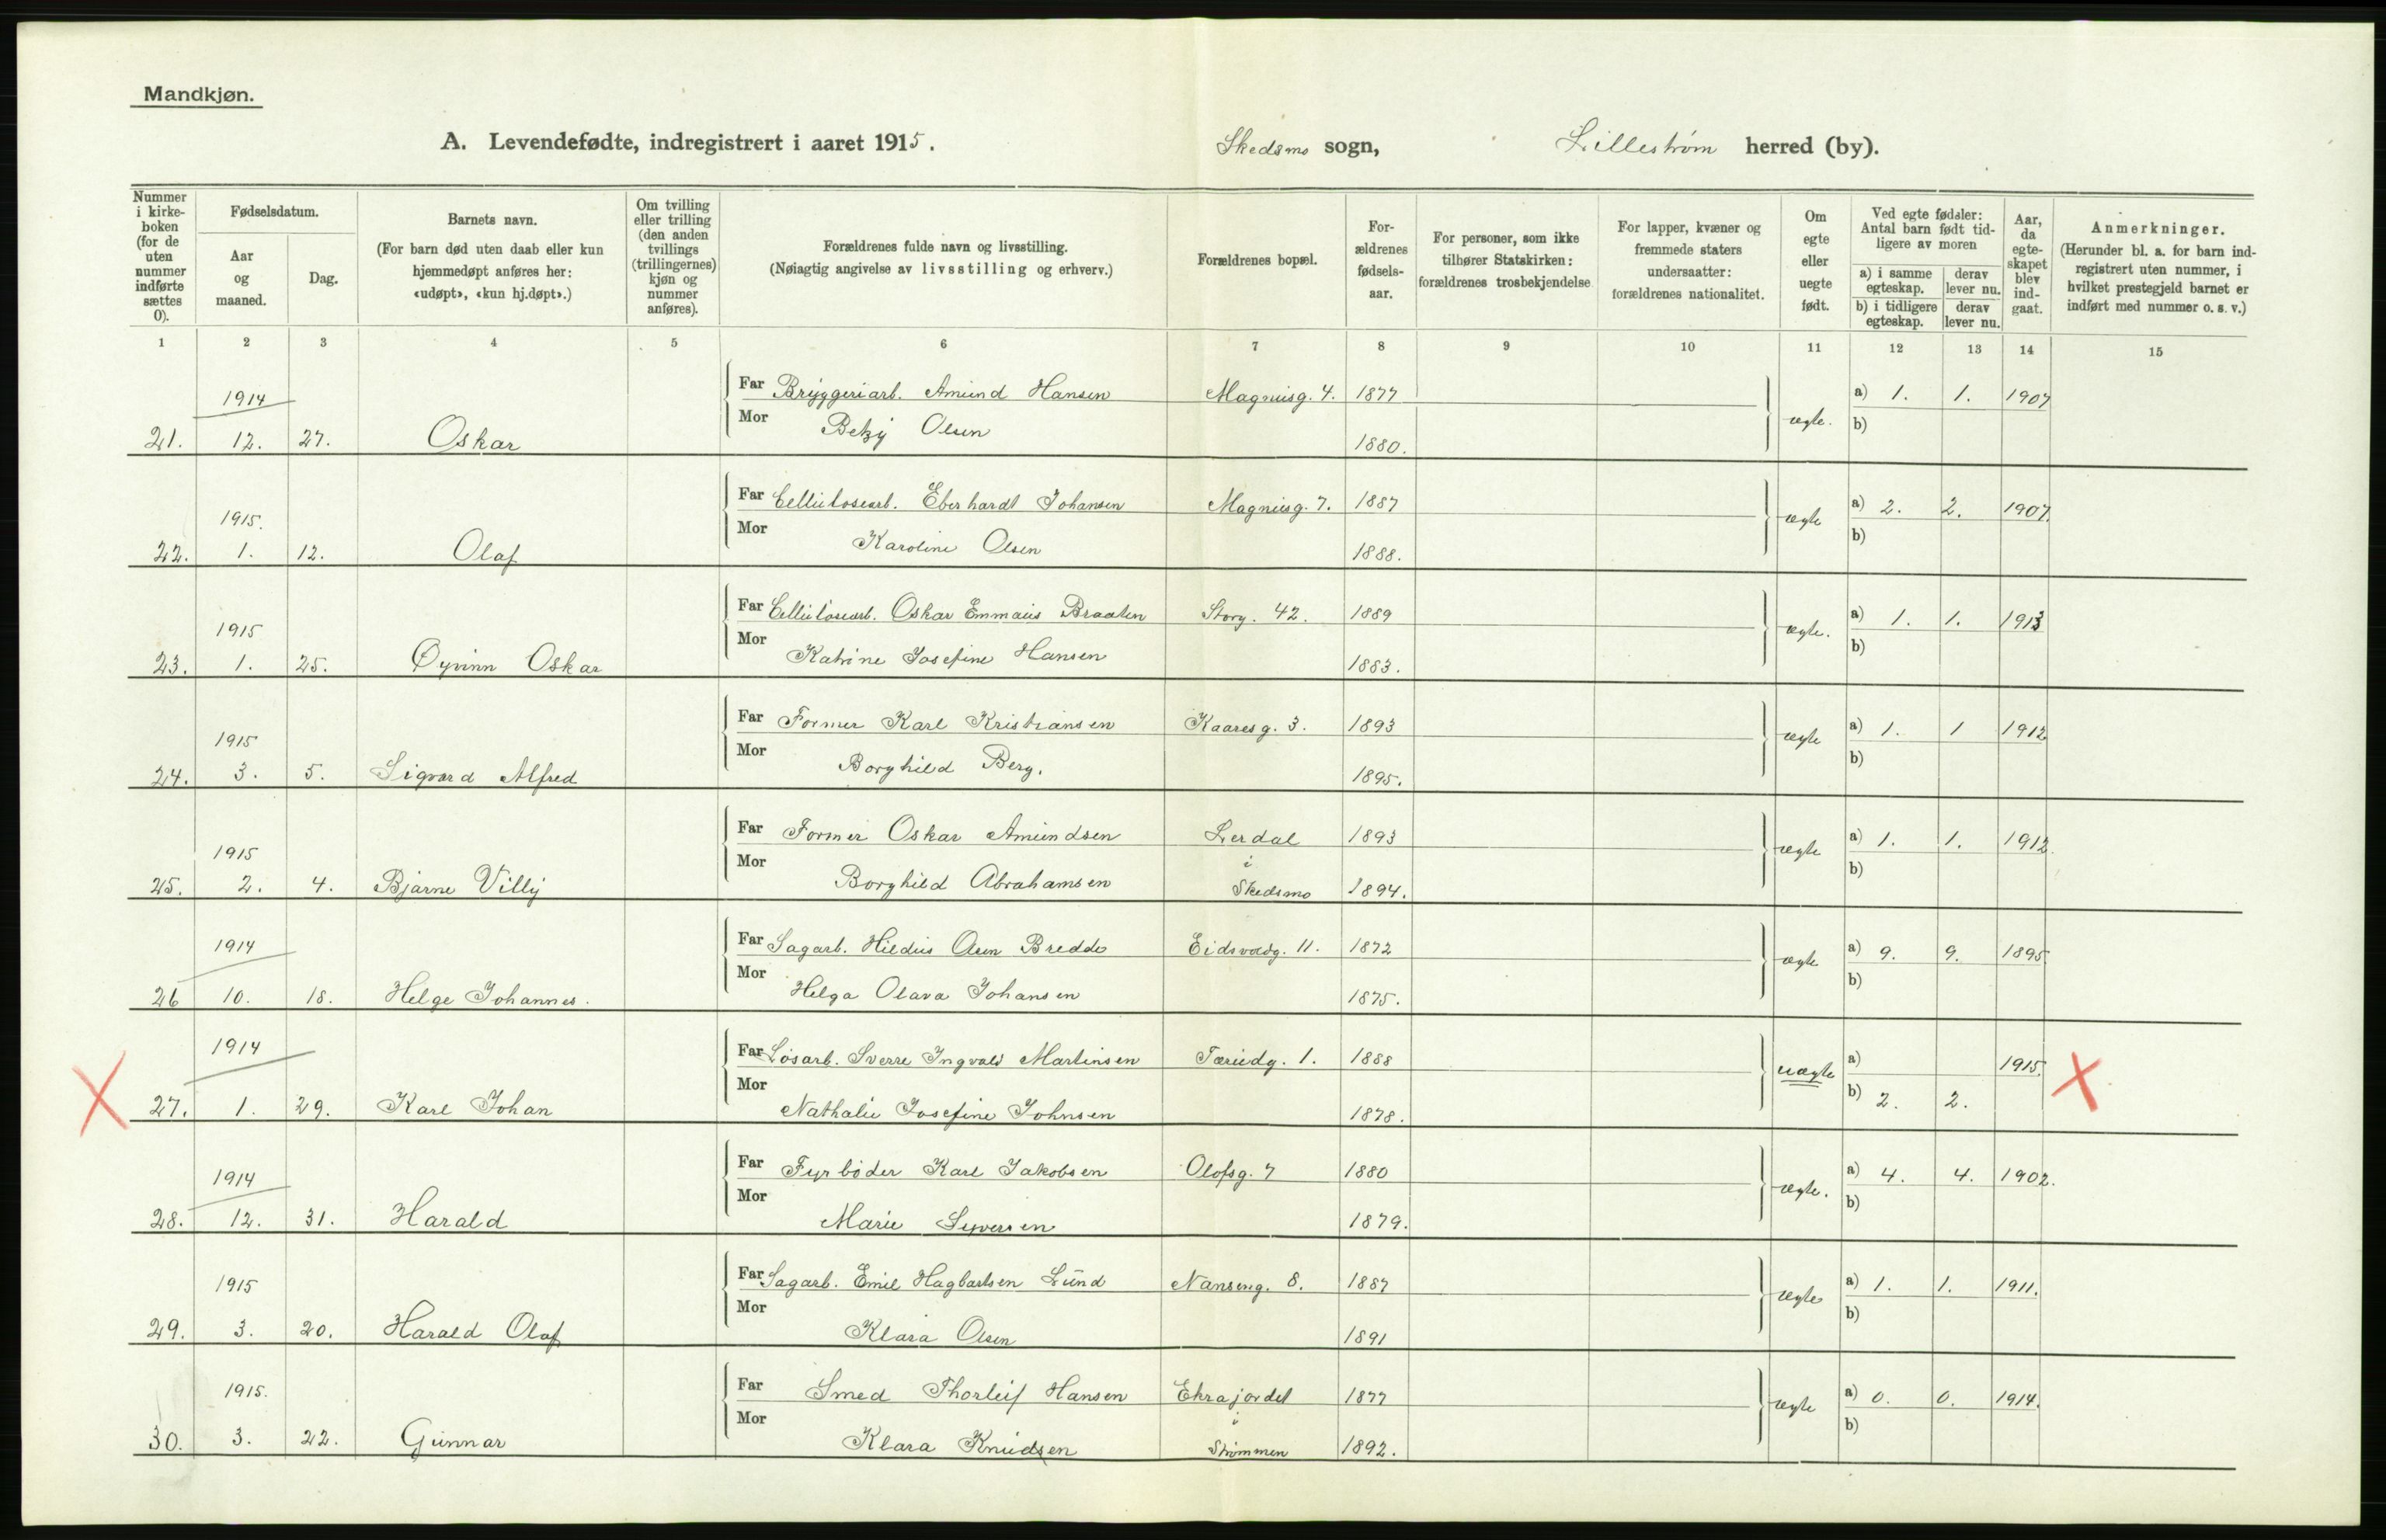 Mandkjøn.
A. Levendefødte, indregistrert i aaret 1915. Skedsmo sogn, Lillestrøm herred (by).
Nummer i kirkeboken (for de uten nummer indførte sættes 0).
Fødselsdatum.
Aar og maaned.
Dag.
Barnets navn.
(For barn død uten daab eller kun hjemmedøpt anføres her: «udøpt», «kun hj.døpt».)
Om tvilling eller trilling (den anden tvillings (trillingernes) kjøn og nummer anføres).
Forældrenes fulde navn og livsstilling.
(Nøiagtig angivelse av livsstilling og erhverv.)
Forældrenes bopæl.
Forældrenes fødselsaar.
For personer, som ikke tilhører Statskirken: forældrenes trosbekjendelse
For lapper, kvæner og fremmede staters undersaatter: forældrenes nationalitet.
Om egte eller uegte født.
Ved egte fødsler: Antal barn født tidligere av moren
a) i samme egteskap.
derav lever nu.
b) i tidligere egteskap.
derav lever nu.
Aar, da egteskapet blev indgaat.
Anmerkninger.
(Herunder bl. a. for barn indregistrert uten nummer, i hvilket prestegjeld barnet er indført med nummer o. s. v.)
1 2 3 4 5 6 7 8 9 10 11 12 13 14 15
1914 Far Bryggeriarb. Amund Hansen Magnusg. 4. 1877 a) 1. 1. 1907
21. 12. 27. Oskar Mor Betzy Olsen 1880. egte. b)
1915. Far Cellulosearb. Eberhardt Johansen Magnusg. 7. 1887 a) 2. 2. 1907.
22. 1. 12. Olaf Mor Karoline Olsen 1888. egte b)
1915 Far Cellulosearb. Oskar Emmaus Braaten Storg. 42. 1889 a) 1. 1. 1913
23. 1. 25. Øyvinn Oskar Mor Katrine Josefine Hansen 1883. egte. b)
1915 Far Former Karl Kristiansen Kaaresg. 3. 1893 a) 1. 1 1912
24. 3. 5. Sigvard Alfred Mor Borghild Berg. 1895. egte b)
1915 Far Former Oskar Amundsen Lerdal 1893 a) 1. 1. 1912.
25. 2. 4. Bjarne Villy Mor Borghild Abrahamsen i Skedsmo 1894. egte b)
1914 Far Sagarb. Hildus Olsen Bredde Eidsvoldg. 11. 1872 a) 9. 9. 1895
26 10. 18. Helge Johannes. Mor Helga Olava Johansen 1875. egte b)
1914 Far Løsarb. Sverre Ingvald Martinsen 1. 1888 a) 1915.
27. 1. 29. Karl Johan Mor Nathalie Josefine Johnsen 1878. uegte b) 2. 2.
1914 Far Fyrbøder Karl Jakobsen Olofsg. 7 1880 a) 4. 4. 1902.
28. 12. 31. Harald Mor Marie Syversen 1879. egte. b)
1915 Far Sagarb. Emil Hagbartsen Lund Nanseng. 8. 1887 a) 1. 1. 1911.
29. 3. 20. Harald Olaf Mor Klara Olsen 1891 egte b)
1915. Far Smed Thorleif Hansen Ekrajordet 1877 a) 0. 0. 1914.
30. 3. 22. Gunnar Mor Klara Knudsen i Strømmen 1892. egte b)